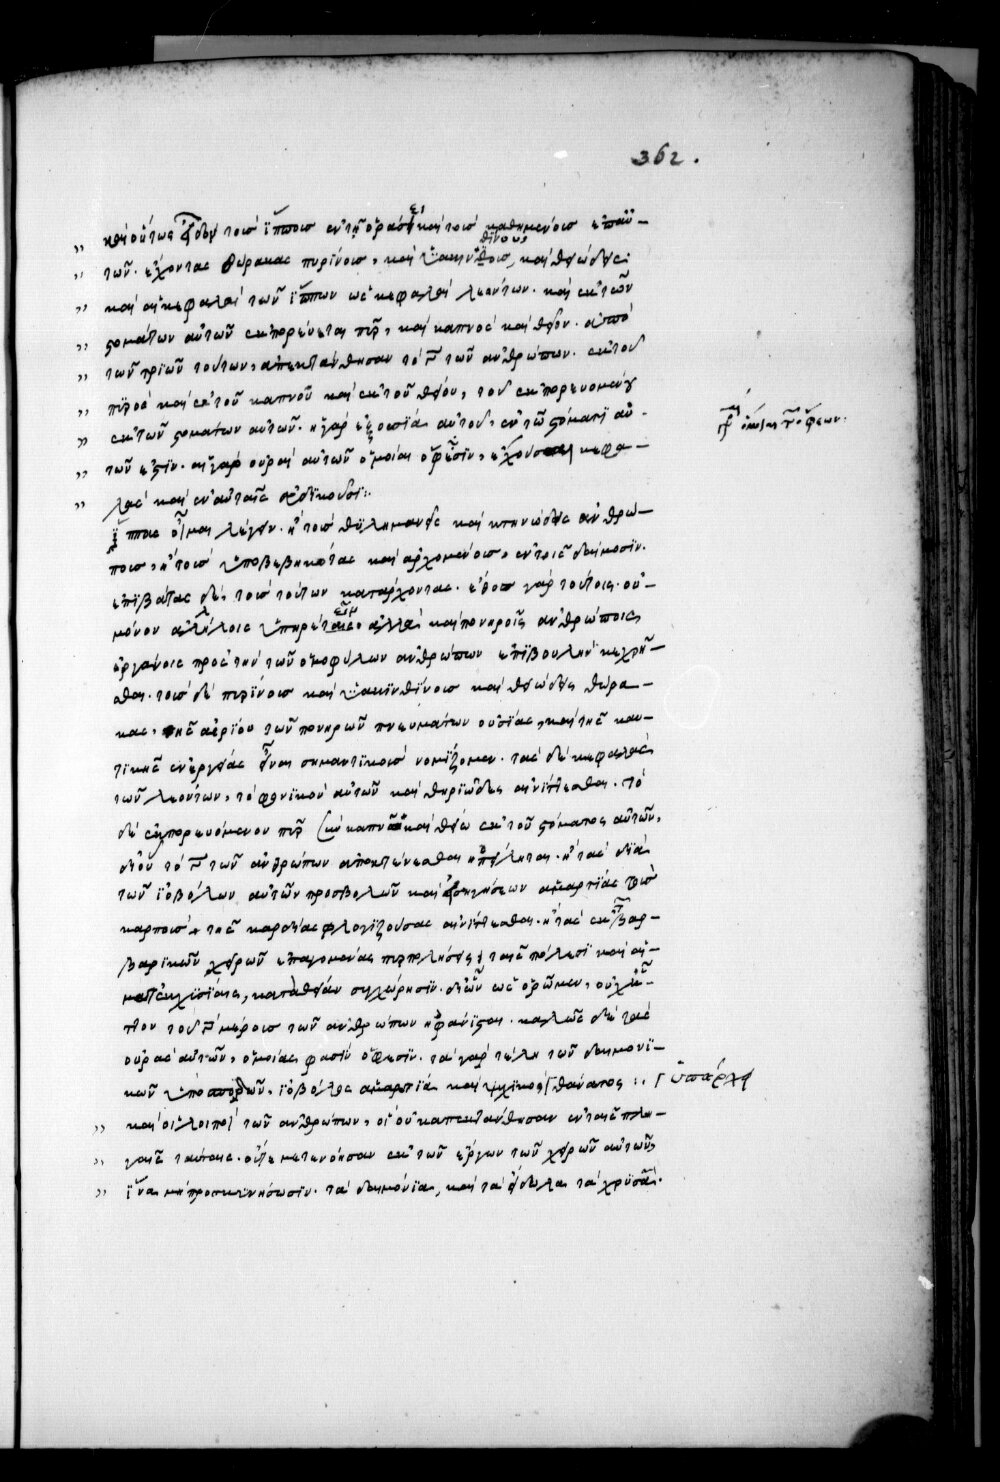 362.
καὶ οὕτως εἶδον τοὺς ἵππους ἐν τῇ ὁράσει καὶ τοὺς καθημένους ἐπ' αὐ-
τῶν. ἔχοντας θώρακας πυρίνους, καὶ ὑακινθίνους, καὶ θειώδεις
καὶ αἱ κεφαλαὶ τῶν ἵππων ὡς κεφαλαὶ λεόντων. καὶ ἐκ τῶν
στομάτων αὐτῶν ἐκπορεύεται πῦρ, καὶ καπνὸς καὶ θεῖον. ἀπὸ
τῶν τριῶν τούτων, ἀπεκτάνθησαν τὸ γ τῶν ἀνθρώπων. ἐκ τοῦ
πυρὸς καὶ ἐκ τοῦ καπνοῦ καὶ ἐκ τοῦ θείου, τοῦ ἐκπορευομένου
ἐκ τῶν στομάτων αὐτῶν. ἡ γὰρ ἐξουσία αὐτοῦ, ἐν τῷ στόματι αὐ-
τῶν ἐστὶν. αἱ γὰρ οὐραὶ αὐτῶν ὅμοιαι ὄφεσιν, ἔχουσαι κεφα-
λὰς καὶ ἐν αὐταῖς ἀδικοῦσι:
ἵππους οἶμαι λέγειν. ἢ τοὺς θηλυμανεῖς καὶ κτηνώδεις ἀνθρώ-
πους, ἢ τοὺς ὑποβεβηκότας καὶ ἀρχομένους, ἐν τοῖς δαίμοσιν.
ἐπιβάτας δὲ, τοὺς τούτων κατάρχοντας. ἔθος γὰρ τούτοις. οὐ
μόνον ἀλλήλοις ὑπηρέταις, ἀλλὰ καὶ πονηροῖς ἀνθρώποις
ὀργάνοις πρὸς τὴν τῶν ὁμοφύλων ἀνθρώπων ἐπιβουλὴν κεχρῆ-
σθαι. τοὺς δὲ πυρίνους καὶ ὑακινθίνους καὶ θειώδεις θώρα-
κας, τῆς ἀερίου τῶν πονηρῶν πνευμάτων οὐσίας, καὶ τῆς καυ-
τικῆς ἐνεργείας εἶναι σημαντικοὺς νομίζομεν. τὰς δὲ κεφαλὰς
τῶν λεόντων, τὸ φονικὸν αὐτῶν καὶ θηριῶδες αἰνίττεσθαι. τὸ
δὲ ἐκπορευόμενον πῦρ σὺν καπνῷ καὶ θείῳ ἐκ τοῦ στόματος αὐτῶν,
δι' οὗ τὸ γ τῶν ἀνθρώπων ἀποκτένεσθαι ἠπείληται. ἢ τὰς διὰ
τῶν ἰοβόλων αὐτῶν προσβολῶν καὶ εἰσηγήσεων ἁμαρτίας τοὺς
καρποὺς τῆς καρδίας φλογιζούσας αἰνίττεσθαι. ἢ τὰς ἐκ βαρ-
βαρικῶν χειρῶν ἐπαγομένας πυρπολήσεις ταῖς πόλεσι καὶ αἱ-
ματεκχυσίαις, κατὰ θείαν συγχώρησιν. δι' ὧν ὡς ὁρῶμεν, οὐχ ἧτ-
τον τοῦ γ μέρους τῶν ἀνθρώπων ἠφάνισται. καλῶς δὲ τὰς
οὐρὰς αὐτῶν, ὁμοίας φασὶν ὄφεσιν. τὰ γὰρ τέλη τῶν δαιμονι-
κῶν ὑποσπορῶν, ἰοβόλος ἁμαρτία καὶ ψυχικὸς θάνατος: ὑπάρχει
καὶ οἱ λοιποὶ τῶν ἀνθρώπων, οἳ οὐκ ἀπεκτάνθησαν ἐν ταῖς πλη-
γαῖς ταύταις. οὔτε μετενόησαν ἐκ τῶν ἔργων τῶν χειρῶν αὐτῶν,
ἵνα μὴ προσκυνήσωσιν. τὰ δαιμόνια, καὶ τὰ εἴδωλα τὰ χρυσᾶ.